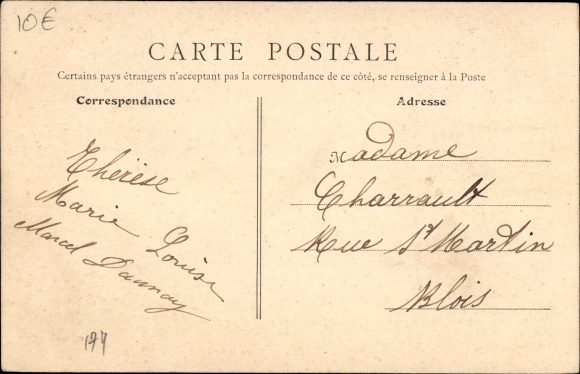 10€
CARTE POSTALE
Certains pays étrangers n'acceptant pas la correspondance de ce côté, se renseigner à la Poste
Correspondance
Thérèse
Marie Louise
Marcel Daunay
177
Adresse
Madame
Charrault
Rue St Martin
Blois